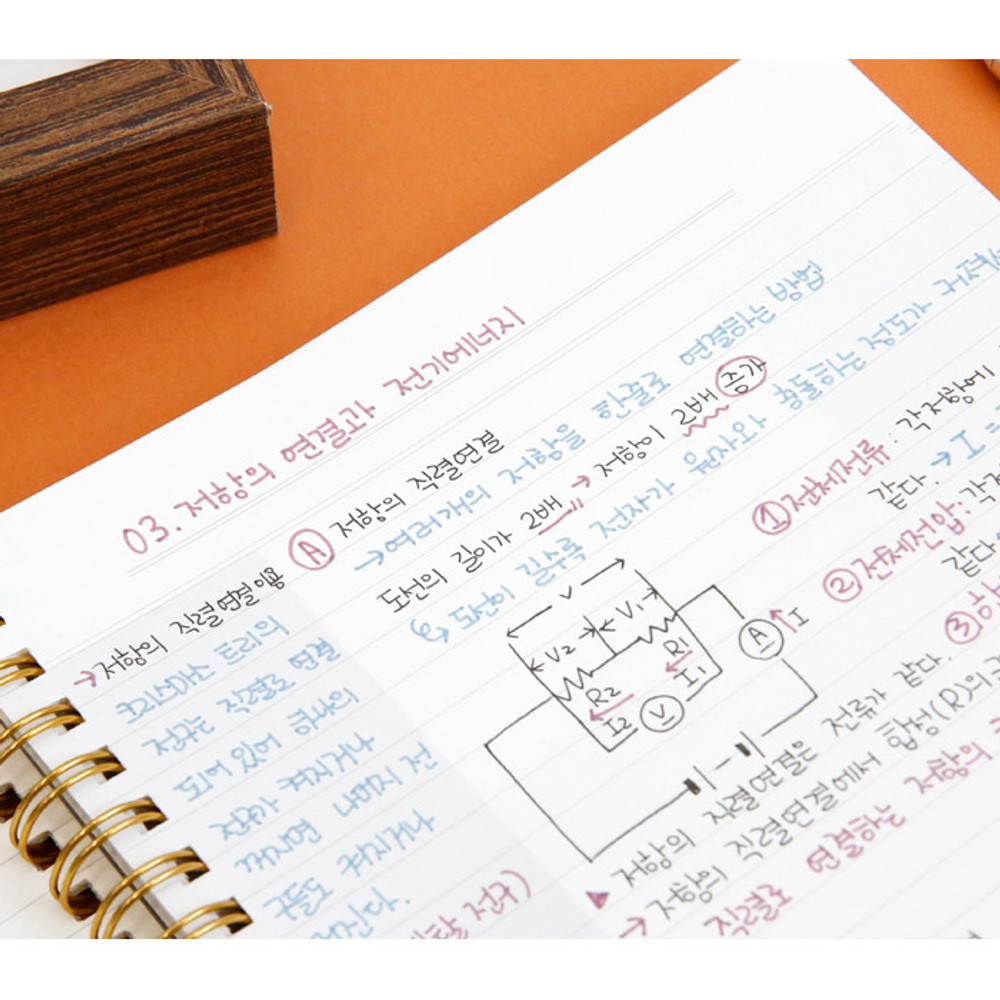 03. 저항의 연결과 전기에너지
Ⓐ 저항의 직렬연결
→여러개의 저항을 한줄로 연결하는 방법
도선의 길이가 2배 → 저항이 2배 증가
도선이 길수록 전자가 원자와 충돌하는 정도가 커져서
→저항의 직렬연결이용
크리스마스 트리의
전구는 직렬로 연결
되어 있어 하나의
전구가 켜지거나
꺼지면 나머지 전
구들도 켜지거나
꺼진다.
전구)
V
V2 V1
R1
R2
I1
I2
V
A
I
①전체전류: 각 저항에
같다. → I =
②전체전압: 각
같다
③
▶ 저항의 직렬연결은 전류가 같다.
→ 저항의 직렬연결에서 합성(R)의
직렬로 연결하는 저항의